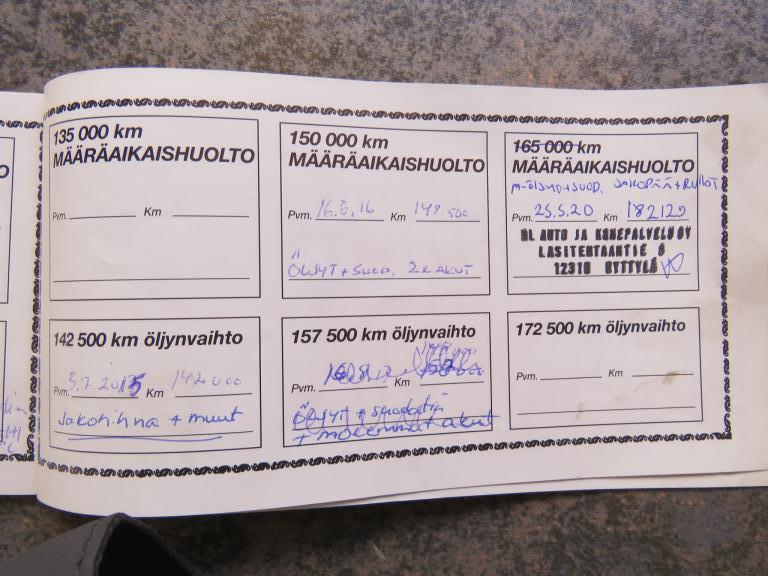 135 000 km
MÄÄRÄAIKAISHUOLTO
Pvm. Km
150 000 km
MÄÄRÄAIKAISHUOLTO
Pvm. 16.5.16 Km 149.500
ÖLJYT + SUOD. 2x AKUT
165 000 km
MÄÄRÄAIKAISHUOLTO
M-ÖLJYT+SUOD. JAKOPÄÄ+RULLOT
Pvm. 25.5.20 Km 182129
ML AUTO JA KONEPALVELU OY
LASITEHTAANTIE 8
12310 RYTTYLÄ
142 500 km öljynvaihto
Pvm. 3.7.2015 Km 142000
Jakohihna + muut
157 500 km öljynvaihto
Pvm. Km
ÖLJYT + suodatin
+ molemmat akut
172 500 km öljynvaihto
Pvm. Km